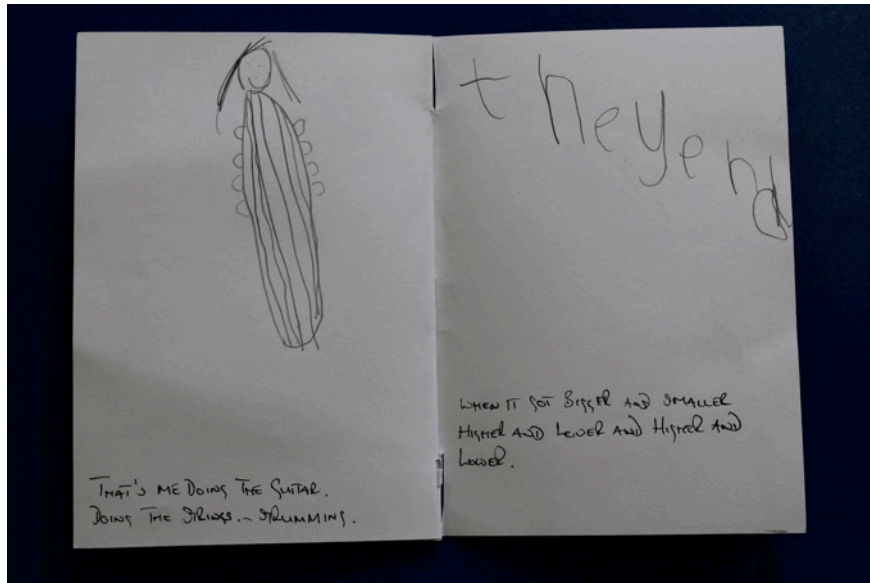 THAT'S ME DOING THE GUITAR.
DOING THE STRINGS – STRUMMING.
theyend
WHEN IT GOT BIGGER AND SMALLER
HIGHER AND LOWER AND HIGHER AND
LOWER.